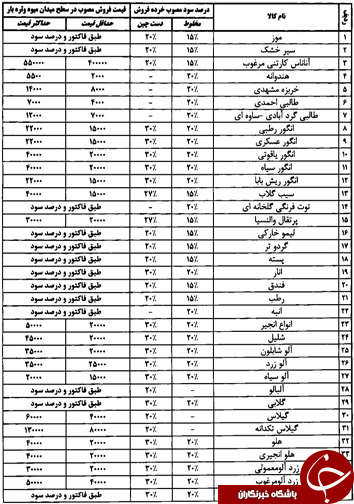 ردیف نام کالا درصد سود مصوب خرده فروش قیمت فروش مصوب در سطح میدان میوه وتره بار
مخلوط دست چین حداقل قیمت حداکثر قیمت
۱ موز ۱۵٪ ۲۰٪ طبق فاکتور و درصد سود
۲ سیر خشک ۱۵٪ ۲۰٪ طبق فاکتور و درصد سود
۳ آناناس کارتنی مرغوب ۱۵٪ ۲۰٪ ۴۰۰۰۰۰ ۵۵۰۰۰۰
۴ هندوانه ۲۰٪ - ۲۰۰۰ ۵۵۰۰
۵ خربزه مشهدی ۲۰٪ - ۸۰۰۰ ۱۴۰۰۰
۶ طالبی احمدی ۲۰٪ - ۴۰۰۰ ۷۰۰۰
۷ طالبی گرد آبادی -ساوه ای ۲۰٪ - ۷۰۰۰ ۱۲۰۰۰
۸ انگور رطبی ۲۰٪ ۳۰٪ ۱۵۰۰۰ ۲۲۰۰۰
۹ انگور عسکری ۲۰٪ ۳۰٪ ۱۵۰۰۰ ۲۲۰۰۰
۱۰ انگور یاقوتی ۲۰٪ ۳۰٪ ۲۰۰۰۰ ۴۰۰۰۰
۱۱ انگور سیاه ۲۰٪ ۳۰٪ ۲۰۰۰۰ ۴۰۰۰۰
۱۲ انگور ریش بابا ۲۰٪ ۳۰٪ ۱۵۰۰۰ ۲۲۰۰۰
۱۳ سیب گلاب ۱۵٪ ۲۷٪ ۱۵۰۰۰ ۴۰۰۰۰
۱۴ توت فرنگی گلخانه ای ۲۰٪ - طبق فاکتور و درصد سود
۱۵ پرتقال والنسیا ۱۵٪ ۲۷٪ ۲۰۰۰۰ ۳۰۰۰۰
۱۶ لیمو خارکی ۱۵٪ ۲۰٪ طبق فاکتور و درصد سود
۱۷ گردو تر ۱۵٪ ۲۰٪ طبق فاکتور و درصد سود
۱۸ پسته ۱۵٪ ۲۰٪ طبق فاکتور و درصد سود
۱۹ انار ۲۰٪ ۳۰٪ طبق فاکتور و درصد سود
۲۰ فندق ۱۵٪ ۲۰٪ طبق فاکتور و درصد سود
۲۱ رطب ۱۵٪ ۲۰٪ طبق فاکتور و درصد سود
۲۲ انبه ۲۰٪ - طبق فاکتور و درصد سود
۲۳ انواع انجیر ۲۰٪ ۳۰٪ ۲۰۰۰۰ ۵۰۰۰۰
۲۴ شلیل ۲۰٪ ۳۰٪ ۲۰۰۰۰ ۴۵۰۰۰
۲۵ آلو شابلون ۲۰٪ ۳۰٪ ۲۰۰۰۰ ۳۵۰۰۰
۲۶ آلو زرد ۲۰٪ ۳۰٪ ۲۵۰۰۰ ۳۵۰۰۰
۲۷ آلو سیاه ۲۰٪ ۳۰٪ ۱۵۰۰۰ ۲۰۰۰۰
۲۸ آلبالو ۲۰٪ - طبق فاکتور و درصد سود
۲۹ گلابی ۲۰٪ ۳۰٪ طبق فاکتور و درصد سود
۳۰ گیلاس ۲۰٪ - ۴۰۰۰۰ ۶۰۰۰۰
۳۱ گیلاس تکدانه - ۳۰٪ ۸۰۰۰۰ ۱۳۰۰۰۰
۳۲ هلو ۲۰٪ ۳۰٪ ۲۰۰۰۰ ۴۰۰۰۰
۳۳ هلو انجیری ۲۰٪ ۳۰٪ ۲۰۰۰۰ ۴۰۰۰۰
زرد آلومعمولی ۲۰٪ ۳۰٪ ۲۰۰۰۰ ۳۰۰۰۰
زرد آلومرغوب ۲۰٪ ۳۰٪ ۴۰۰۰۰ ۵۰۰۰۰
۲۰٪ ۳۰٪ طبق فاکتور و درصد سود
باشگاه خبرنگاران